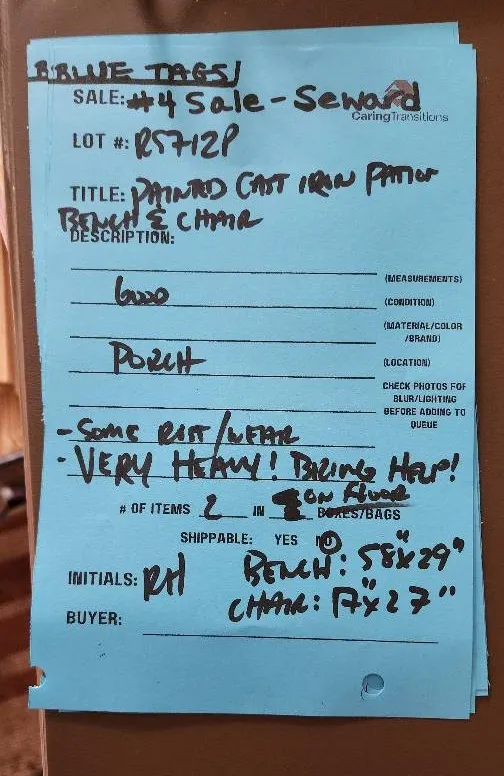 BBLUE TAGS!
SALE: #4 Sale - Seward
CaringTransitions
LOT #: R5712P
TITLE: PAINTED CAST IRON PATIO
BENCH & CHAIR
DESCRIPTION:
(MEASUREMENTS)
GOOD (CONDITION)
(MATERIAL/COLOR
/BRAND)
PORCH (LOCATION)
CHECK PHOTOS FOR
BLUR/LIGHTING
BEFORE ADDING TO
QUEUE
- SOME RUST/WEAR
- VERY HEAVY! BRING HELP!
ON FLOOR
# OF ITEMS 2 IN BOXES/BAGS
SHIPPABLE: YES NO
BENCH: 58"x29"
INITIALS: RH
CHAIR: 17"x27"
BUYER: